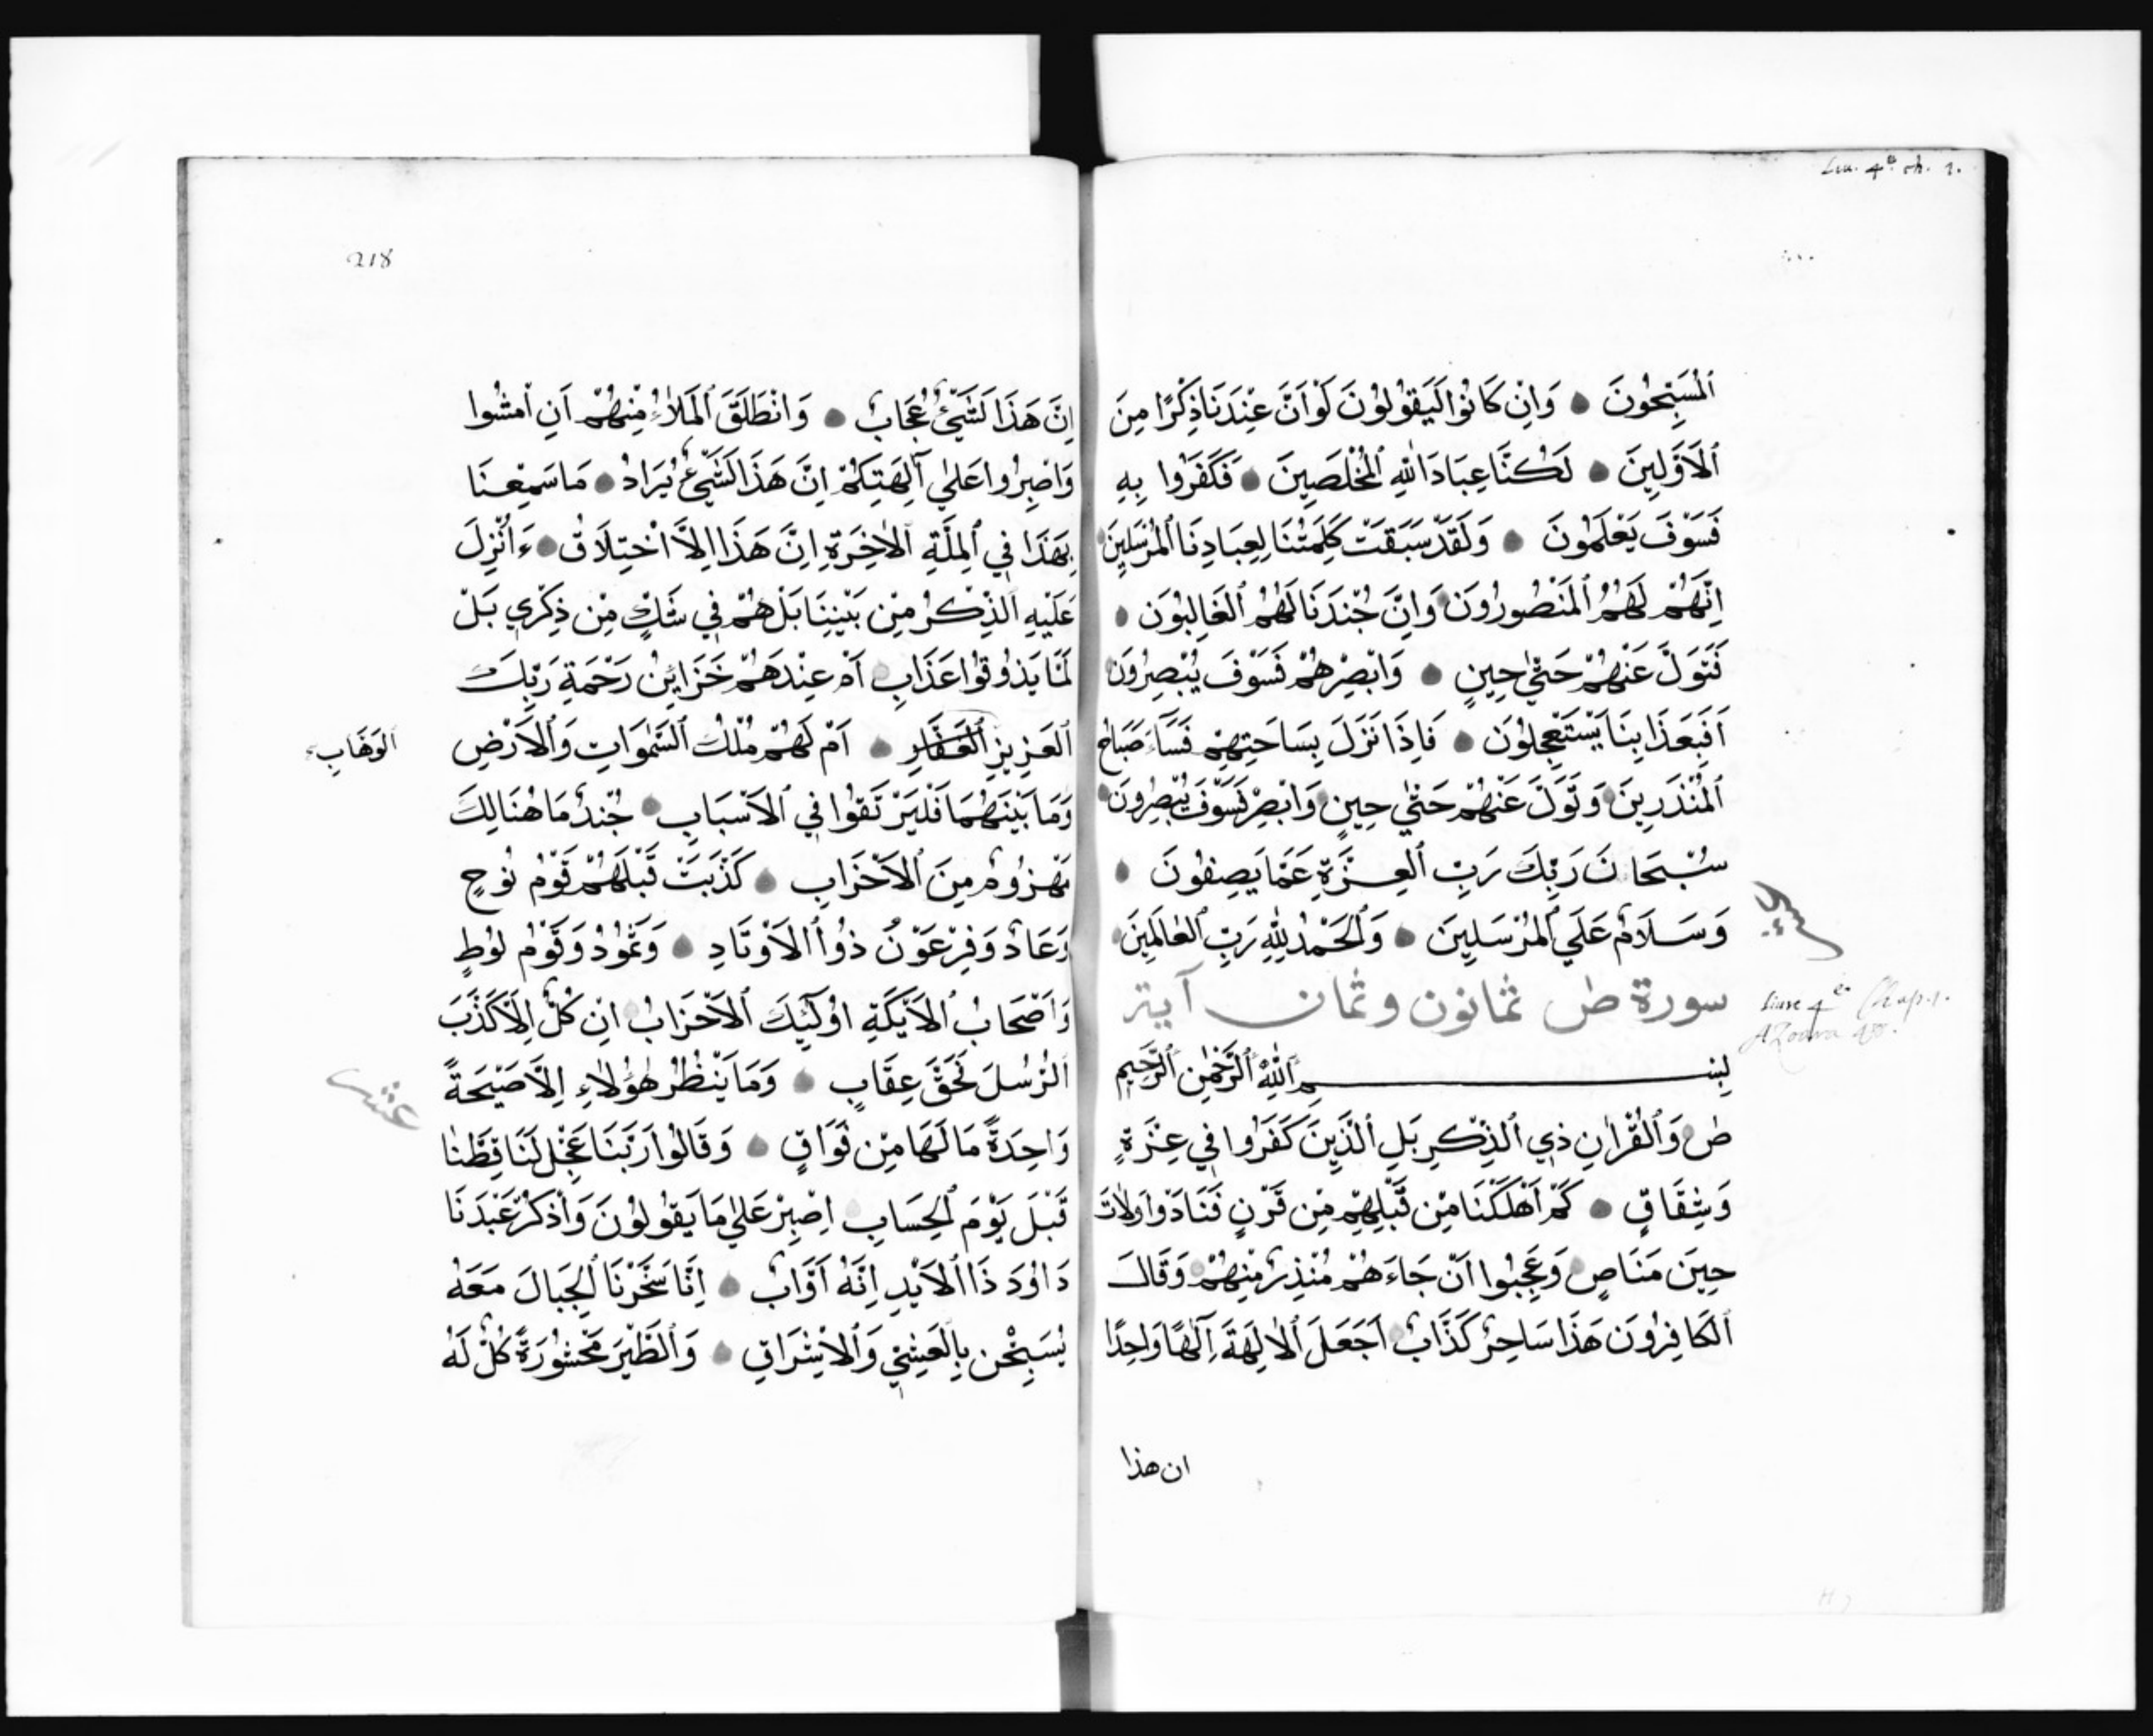 Liu. 4e. ch. 1.
ٱلْمُسَبِّحُونَ وَاِنْ كَانُوا لَيَقُولُونَ لَوْ اَنَّ عِنْدَنَا ذِكْرًا مِنَ
ٱلْاَوَّلِينَ لَكُنَّا عِبَادَ اللهِ ٱلْمُخْلَصِينَ فَكَفَرُوا بِهِ
فَسَوْفَ يَعْلَمُونَ وَلَقَدْ سَبَقَتْ كَلِمَتُنَا لِعِبَادِنَا ٱلْمُرْسَلِينَ
اِنَّهُمْ لَهُمُ ٱلْمَنْصُورُونَ وَاِنَّ جُنْدَنَا لَهُمُ ٱلْغَالِبُونَ
فَتَوَلَّ عَنْهُمْ حَتّٰي حِينٍ وَاَبْصِرْهُمْ فَسَوْفَ يُبْصِرُونَ
اَفَبِعَذَابِنَا يَسْتَعْجِلُونَ فَاِذَا نَزَلَ بِسَاحَتِهِمْ فَسَآءَ صَبَاحُ
ٱلْمُنْذَرِينَ وَتَوَلَّ عَنْهُمْ حَتّٰي حِينٍ وَاَبْصِرْ فَسَوْفَ يُبْصِرُونَ
سُبْحَانَ رَبِّكَ رَبِّ ٱلْعِزَّةِ عَمَّا يَصِفُونَ
وَسَلَامٌ عَلَي ٱلْمُرْسَلِينَ وَٱلْحَمْدُ لِلّٰهِ رَبِّ ٱلْعَالَمِينَ
سورة ص ثمانون وثمان آية
Liure 4e Chap. 1.
بِسْمِ ٱللهِ ٱلرَّحْمٰنِ ٱلرَّحِيمِ
صۤ وَٱلْقُرْاٰنِ ذِي ٱلذِّكْرِ بَلِ ٱلَّذِينَ كَفَرُوا فِي عِزَّةٍ
وَشِقَاقٍ كَمْ اَهْلَكْنَا مِنْ قَبْلِهِمْ مِنْ قَرْنٍ فَنَادَوْا وَلَاتَ
حِينَ مَنَاصٍ وَعَجِبُوا اَنْ جَاءَهُمْ مُنْذِرٌ مِنْهُمْ وَقَالَ
ٱلْكَافِرُونَ هَذَا سَاحِرٌ كَذَّابٌ اَجَعَلَ ٱلْاٰلِهَةَ اِلٰهًا وَاحِدًا
ان هذا
218
اِنَّ هَذَا لَشَيْئٌ عُجَابٌ وَانْطَلَقَ ٱلْمَلَاُ مِنْهُمْ اَنِ اْمْشُوا
وَاصْبِرُوا عَلٰي آلِهَتِكُمْ اِنَّ هَذَا لَشَيْئٌ يُرَادُ مَا سَمِعْنَا
بِهَذَا فِي ٱلْمِلَّةِ ٱلْاٰخِرَةِ اِنَّ هَذَا اِلَّا اخْتِلَاقٌ ءَاُنْزِلَ
عَلَيْهِ ٱلذِّكْرُ مِنْ بَيْنِنَا بَلْ هُمْ فِي شَكٍّ مِنْ ذِكْرِي بَلْ
لَمَّا يَذُوقُوا عَذَابِ اَمْ عِنْدَهُمْ خَزَايِنُ رَحْمَةِ رَبِّكَ
ٱلْعَزِيزِ ٱلْغَفَّارِ اَمْ لَهُمْ مُلْكُ ٱلسَّمٰوَاتِ وَٱلْاَرْضِ
ٱلْوَهَّابِ
وَمَا بَيْنَهُمَا فَلْيَرْتَقُوا فِي ٱلْاَسْبَابِ جُنْدٌ مَا هُنَالِكَ
مَهْزُومٌ مِنَ ٱلْاَحْزَابِ كَذَّبَتْ قَبْلَهُمْ قَوْمُ نُوحٍ
وَعَادٌ وَفِرْعَوْنُ ذُواْ ٱلْاَوْتَادِ وَثَمُودُ وَقَوْمُ لُوطٍ
وَاَصْحَابُ ٱلْاَيْكَةِ اُولَٓئِكَ ٱلْاَحْزَابُ اِنْ كُلٌّ اِلَّا كَذَّبَ
ٱلرُّسُلَ فَحَقَّ عِقَابِ وَمَا يَنْظُرُ هٰؤُلَاءِ اِلَّا صَيْحَةً
عشر
وَاحِدَةً مَا لَهَا مِنْ فَوَاقٍ وَقَالُوا رَبَّنَا عَجِّلْ لَنَا قِطَّنَا
قَبْلَ يَوْمِ ٱلْحِسَابِ اِصْبِرْ عَلٰي مَا يَقُولُونَ وَاذْكُرْ عَبْدَنَا
دَاوُدَ ذَا ٱلْاَيْدِ اِنَّهُ اَوَّابٌ اِنَّا سَخَّرْنَا ٱلْجِبَالَ مَعَهُ
يُسَبِّحْنَ بِالْعَشِيِّ وَٱلْاِشْرَاقِ وَٱلطَّيْرَ مَحْشُورَةً كُلٌّ لَهُ